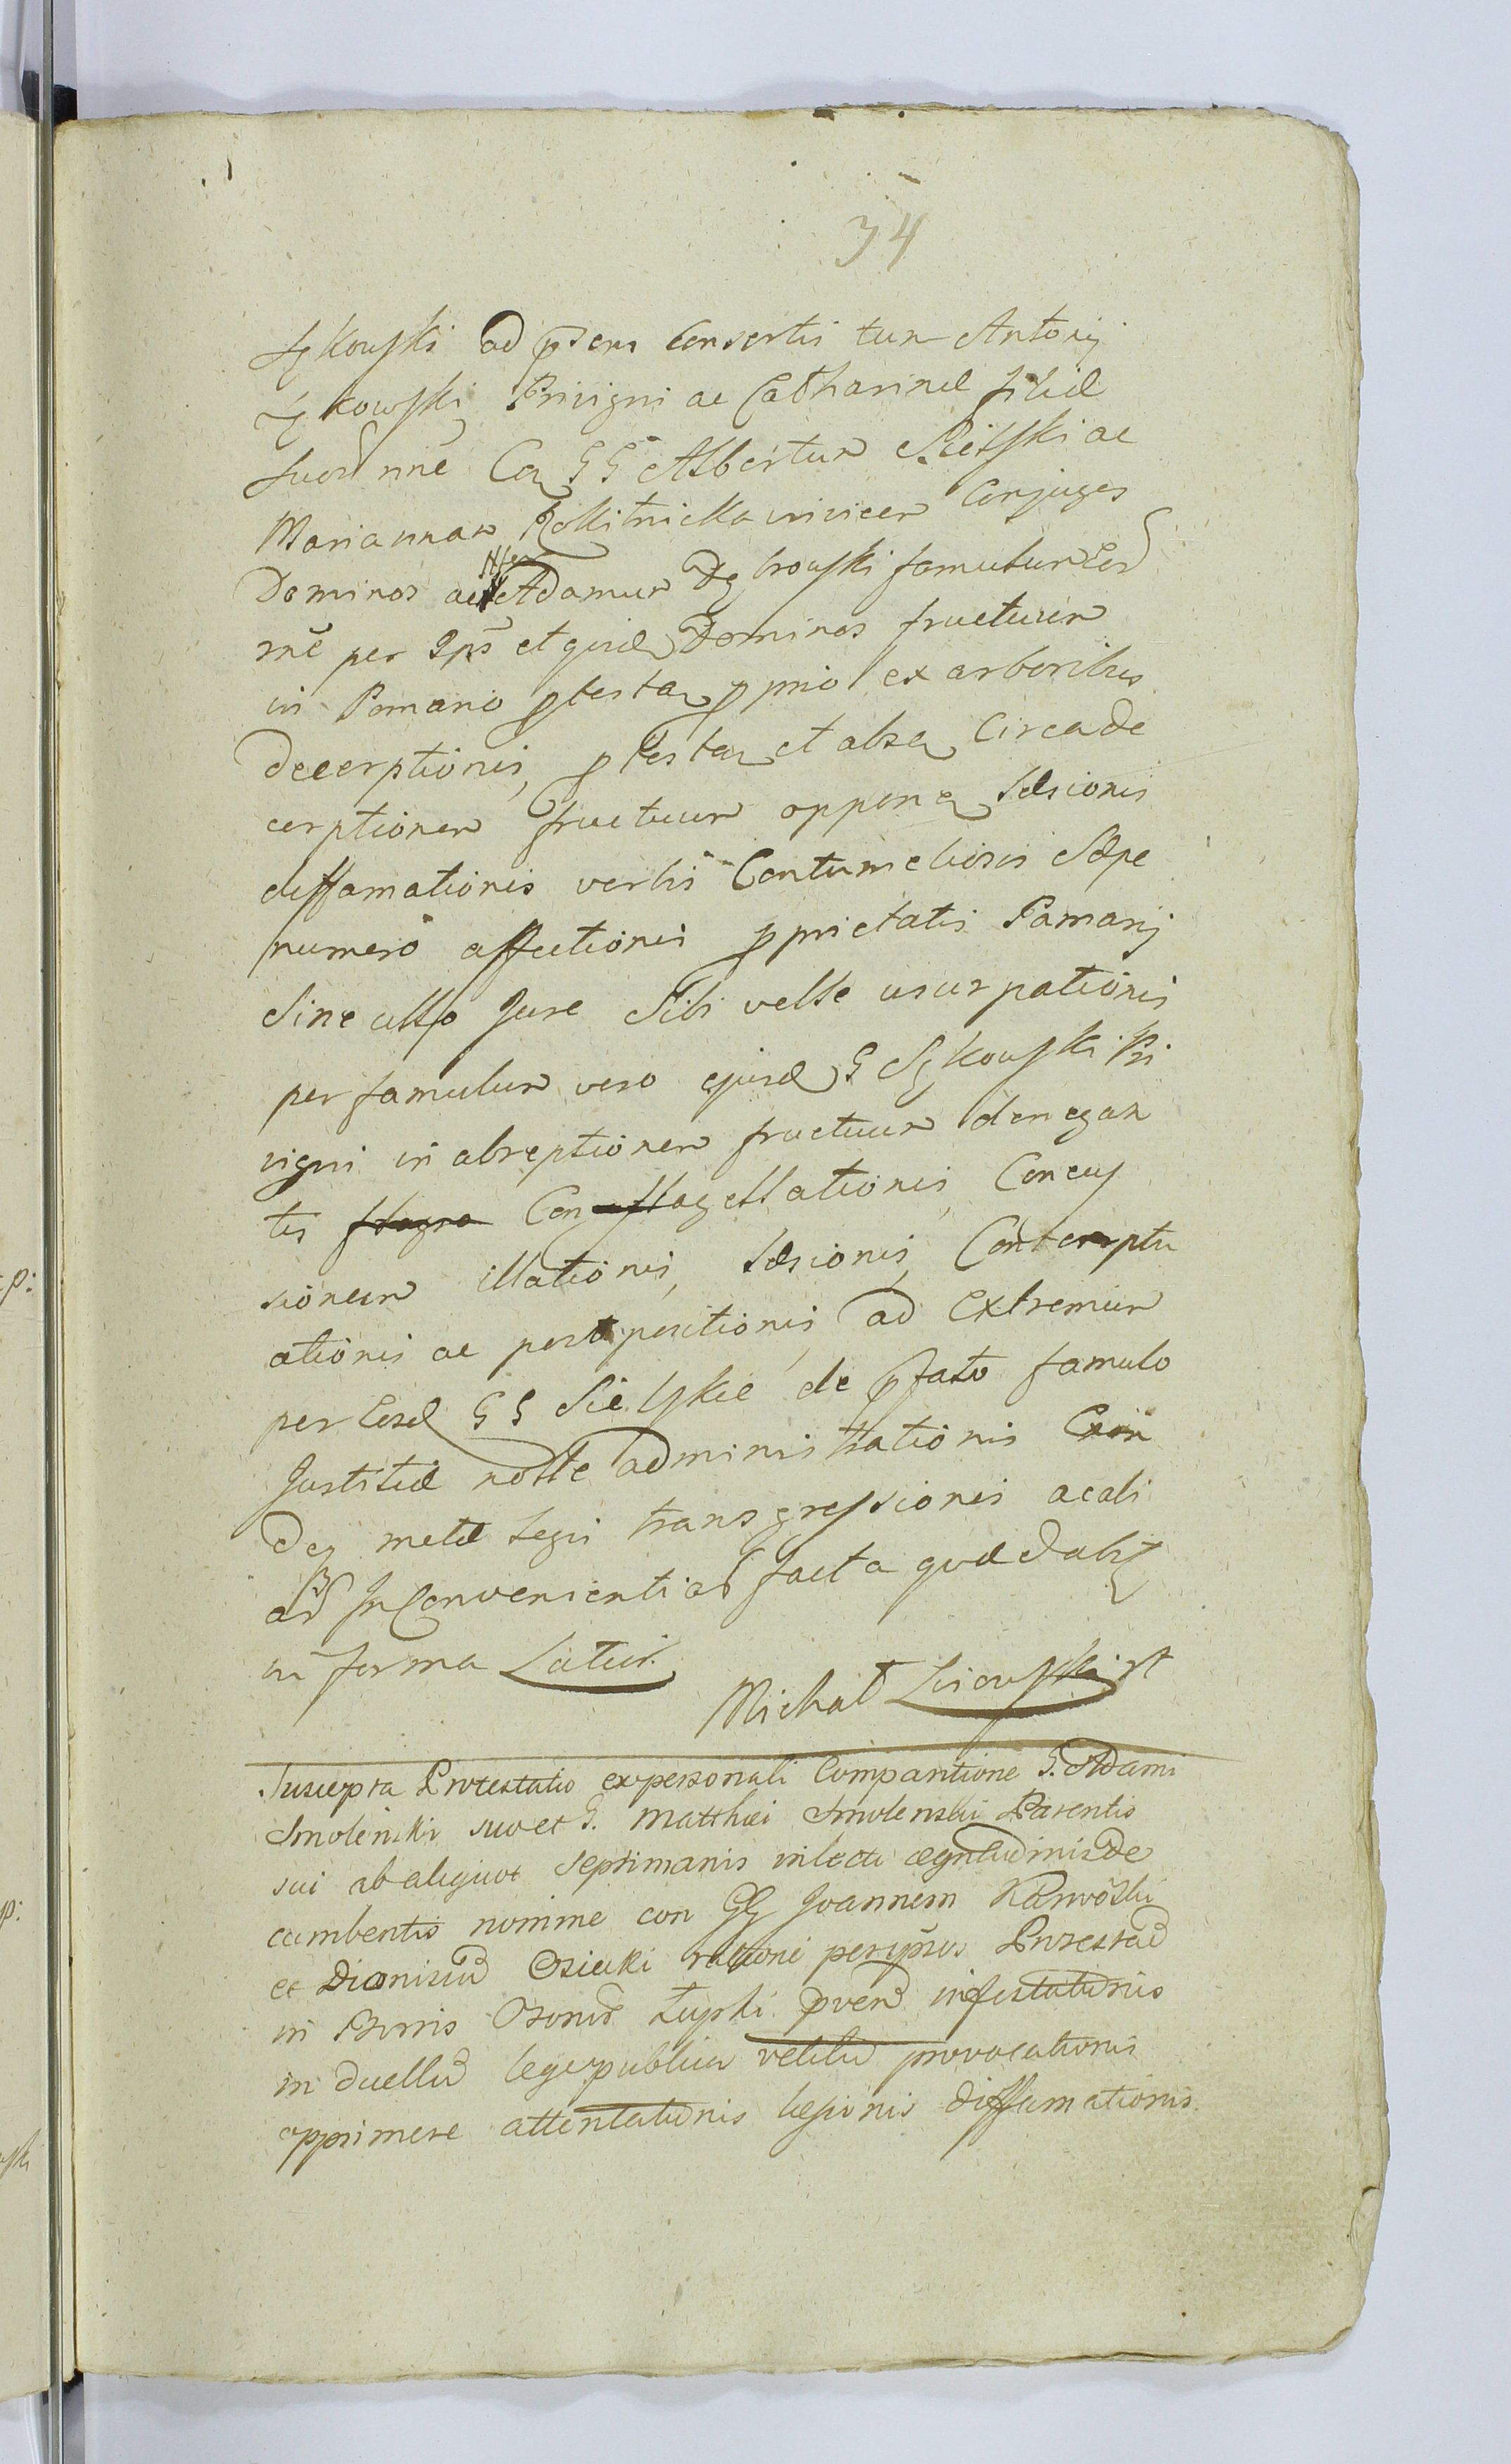 34
Sękowski ad psens consortis tum Antonij
Sękowski Privigni ac Catharinæ filiæ
suor nne Con GG Albertum Sielski ac
Mariannam Rokitnicka invicem Conjuges
Dominos ac Nfem Adamum Dąbrowski famulum Eor
rne per Ips et quid Dominos fructuum
in Pomario ptestan pprio ex arboribus
decerptionis, ptestan et absen Circa de
cerptionem fructuum oppon læsionis
diffamationis verbis Contumeliosis Sæpe
numero affectionis pprietatis Pomarij
Sine ullo Jure Sibi velle usurpationis
per famulum vero ejusd G Sękowski Pri
vigni in abreptionem fructuum denegan
tis flagra Con flagellationis, Concus
sionum illationis, læsionis, Contemptu
ationis ac postpositionis, ad Extremum
per Eosd GG Sielskie de pfato famulo
Justitiæ nolle administrationis
deq metæ legis transgressionis ac ali
ad Inconvenientias facta quæ dabt
in forma Latius.
Michał Lisowski rt
Suscepta Protestatio ex personali Comparitione G. Adami
Smolenski suo et G. Matthiei Smolenski Parentis
sui ab aliquot Septimanis in lecto ægritudinis de
cumbentis nomine con GG Joannem Karwoski
et Dionisiū Osiecki rationi per ipsos Protestaū
in Bonis Osoniē Łupki pvenū infestationis
in duellū lege publica vetitū provocationis
opprimere attentationis læsionis diffamationis